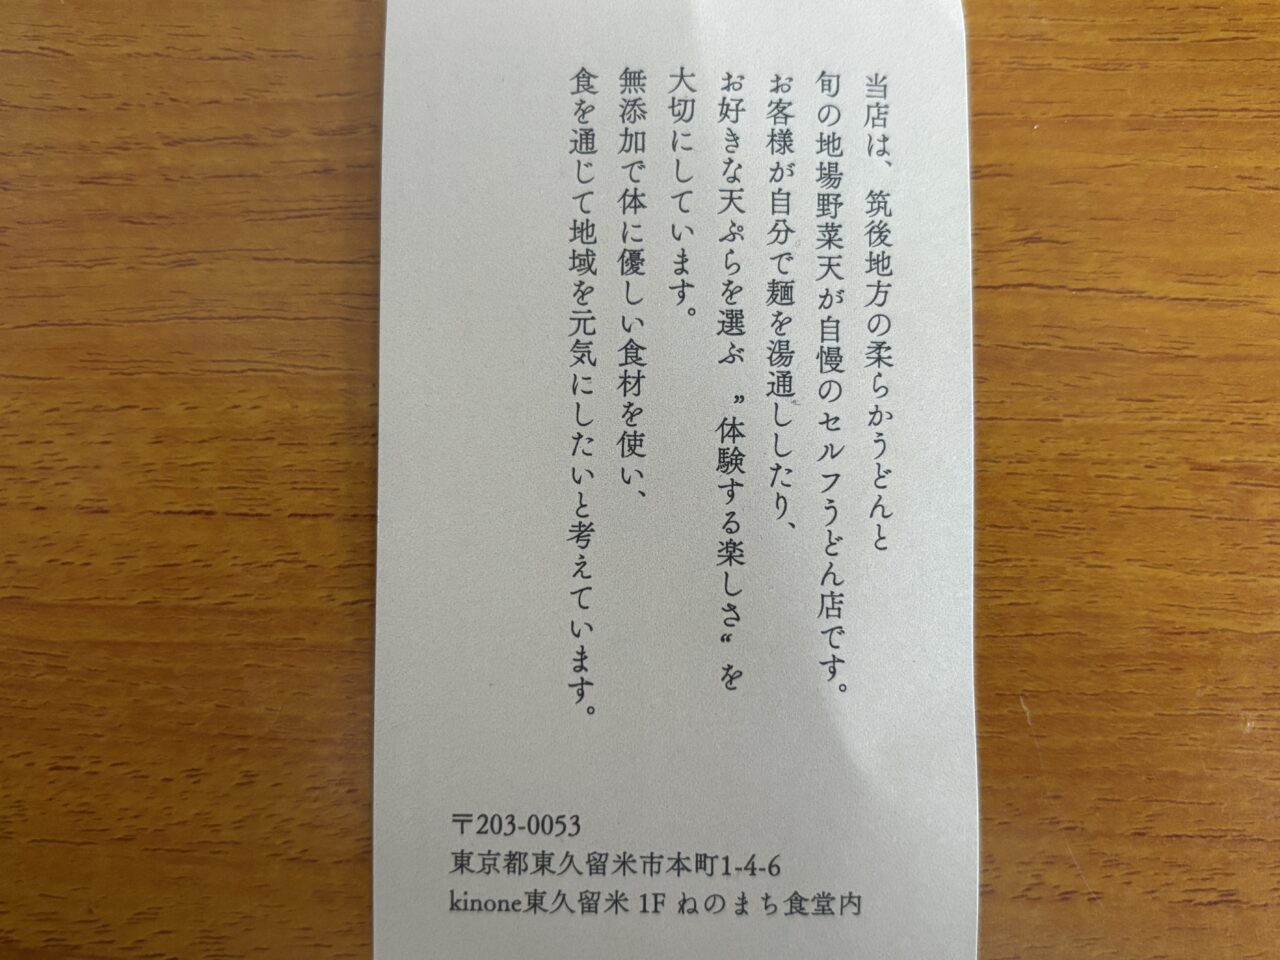 当店は、筑後地方の柔らかうどんと
旬の地場野菜天が自慢のセルフうどん店です。
お客様が自分で麺を湯通ししたり、
お好きな天ぷらを選ぶ〝体験する楽しさ〟を
大切にしています。
無添加で体に優しい食材を使い、
食を通じて地域を元気にしたいと考えています。
〒203-0053
東京都東久留米市本町1-4-6
kinone東久留米 1F ねのまち食堂内